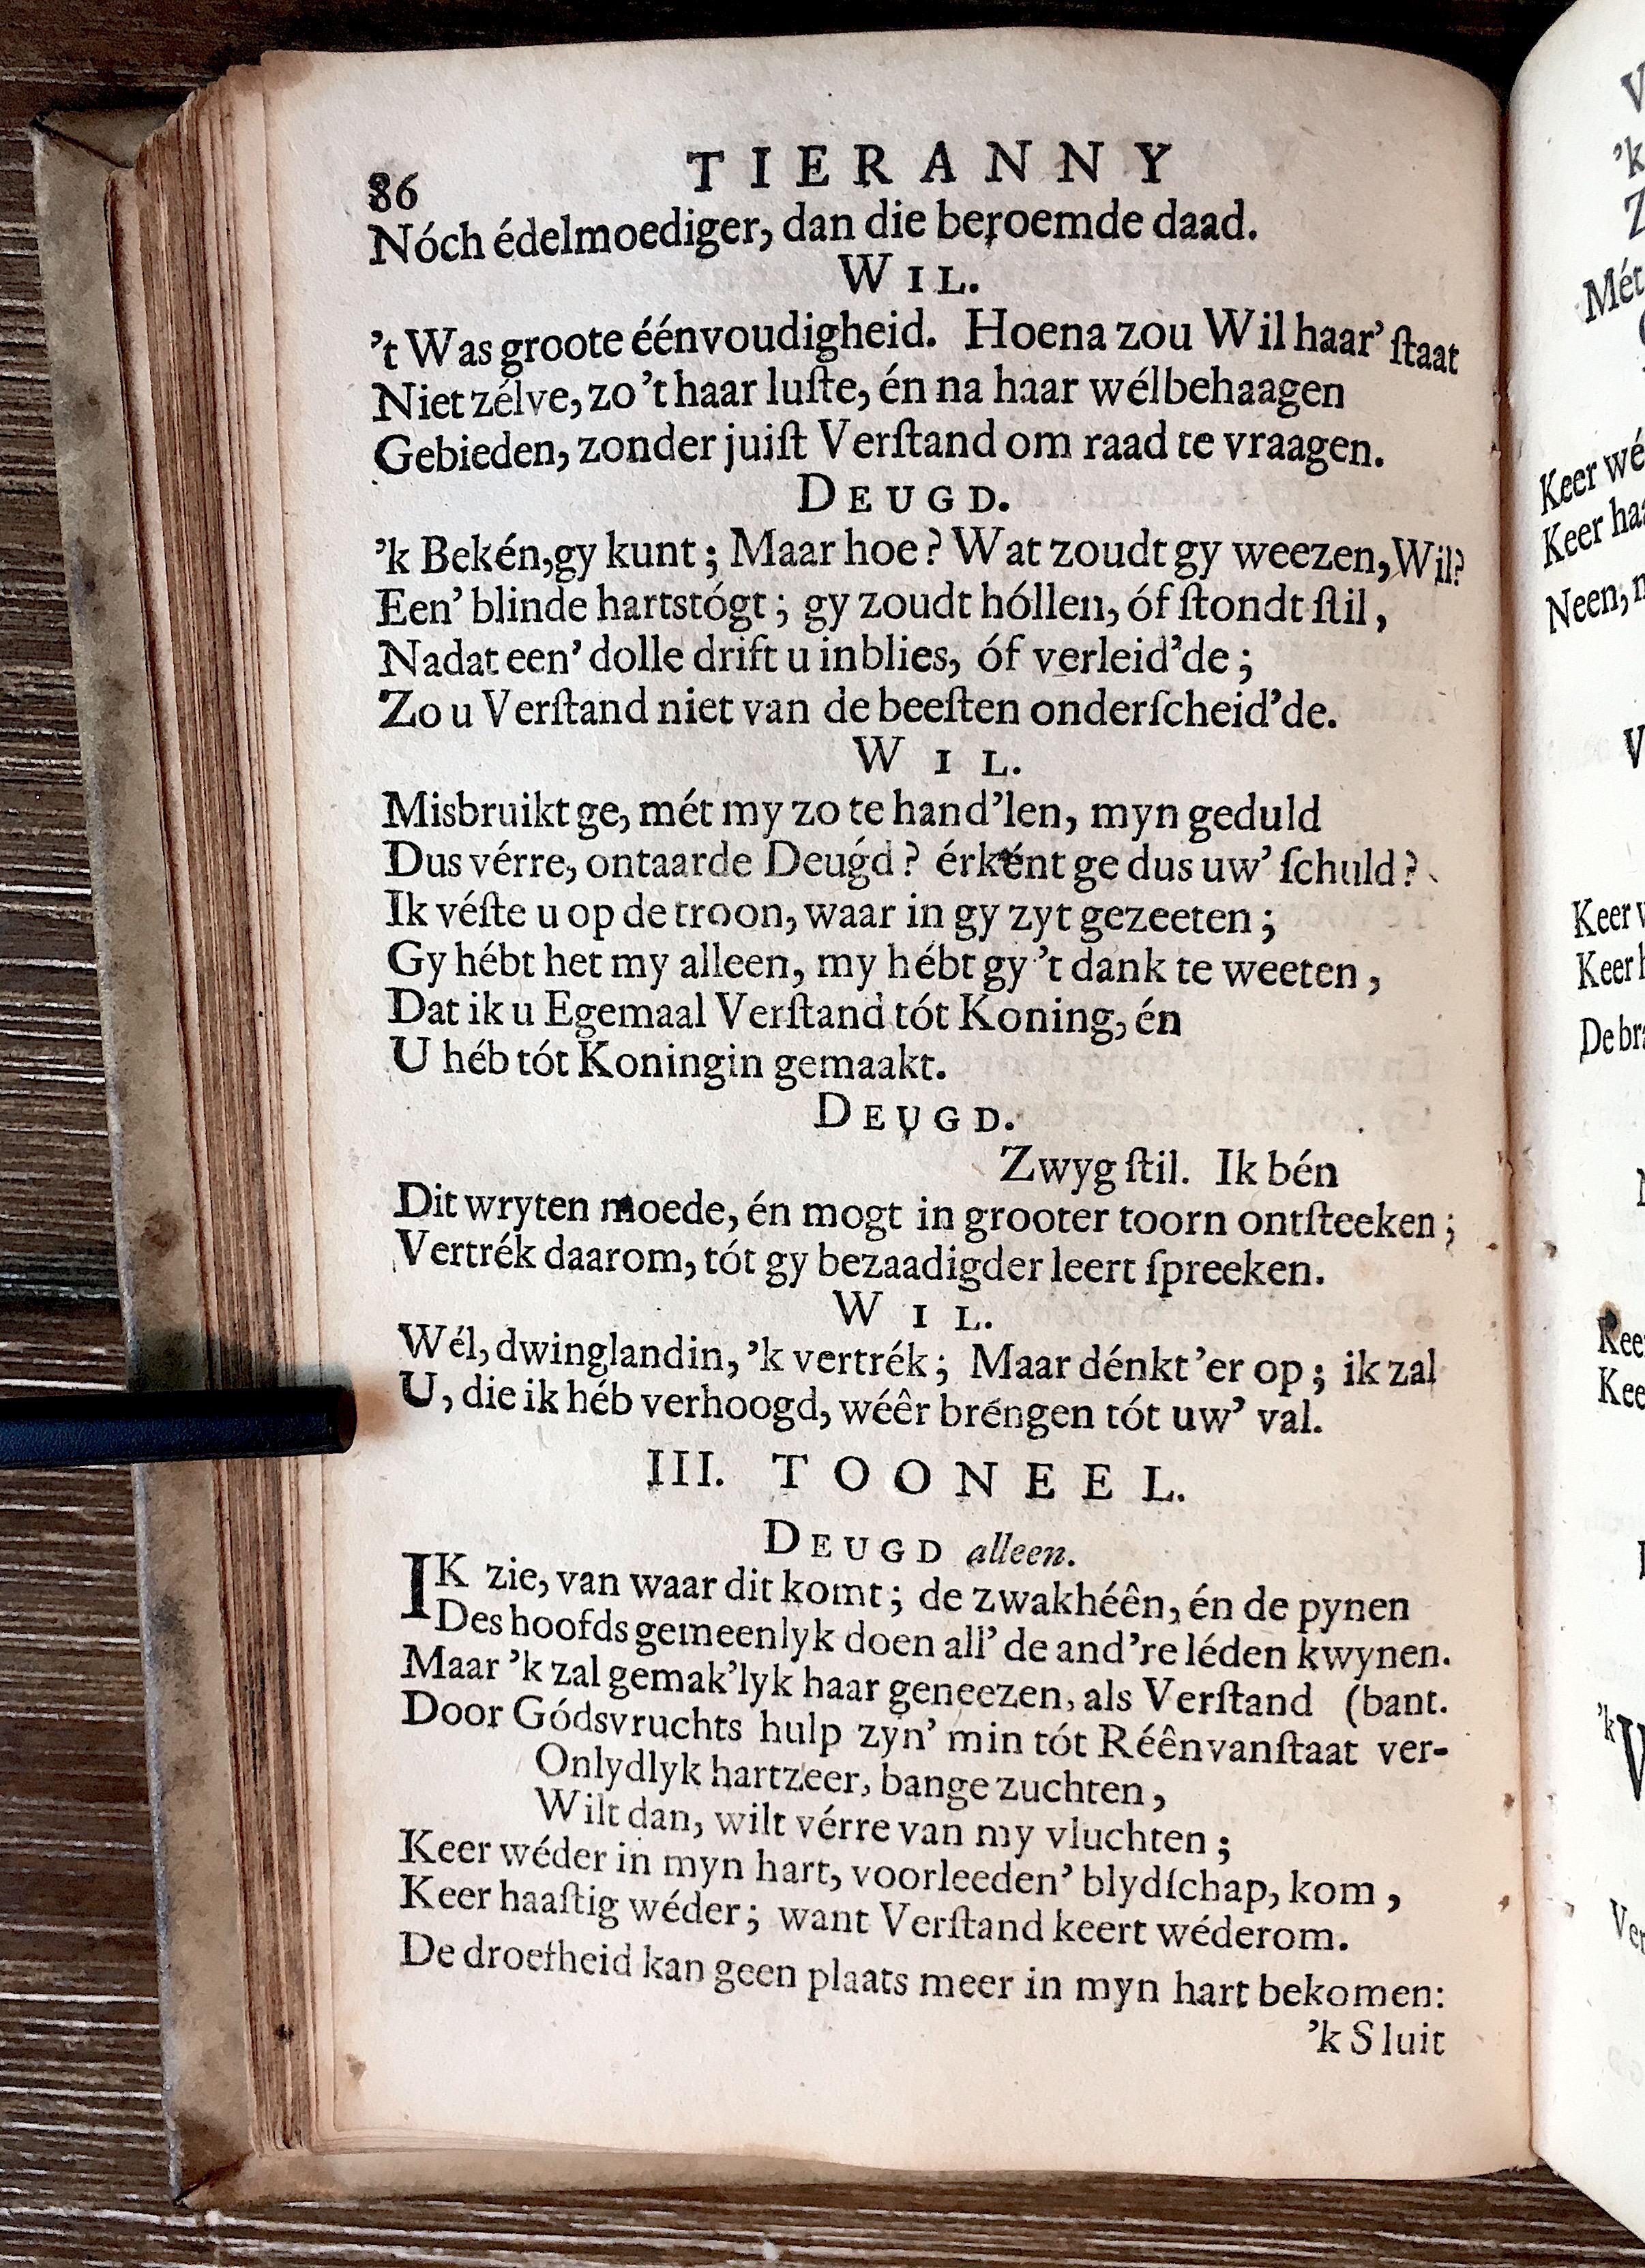 86 TIERANNY
Nóch édelmoediger, dan die beroemde daad.
WIL.
't Was groote éénvoudigheid. Hoena zou Wil haar' ſtaat
Niet zélve, zo 't haar luſte, én na haar wélbehaagen
Gebieden, zonder juiſt Verſtand om raad te vraagen.
DEUGD.
'k Bekén, gy kunt; Maar hoe? Wat zoudt gy weezen, Wil?
Een' blinde hartstógt; gy zoudt hóllen, óf ſtondt ſtil,
Nadat een' dolle drift u inblies, óf verleid'de;
Zo u Verſtand niet van de beeſten onderſcheid'de.
WIL.
Misbruikt ge, mét my zo te hand'len, myn geduld
Dus vérre, ontaarde Deugd? érként ge dus uw' ſchuld?
Ik véſte u op de troon, waar in gy zyt gezeeten;
Gy hébt het my alleen, my hébt gy 't dank te weeten,
Dat ik u Egemaal Verſtand tót Koning, én
U héb tót Koningin gemaakt.
DEUGD.
Zwyg ſtil. Ik bén
Dit wryten moede, én mogt in grooter toorn ontſteeken;
Vertrék daarom, tót gy bezaadigder leert ſpreeken.
WIL.
Wél, dwinglandin, 'k vertrék; Maar dénkt 'er op; ik zal
U, die ik héb verhoogd, wéêr bréngen tót uw' val.
III. TOONEEL.
DEUGD alleen.
IK zie, van waar dit komt; de zwakhéên, én de pynen
Des hoofds gemeenlyk doen all' de and're léden kwynen.
Maar 'k zal gemak'lyk haar geneezen, als Verſtand (bant.
Door Gódsvruchts hulp zyn' min tót Réênvanſtaat ver-
Onlydlyk hartzeer, bange zuchten,
Wilt dan, wilt vérre van my vluchten;
Keer wéder in myn hart, voorleeden' blydſchap, kom,
Keer haaſtig wéder; want Verſtand keert wéderom.
De droefheid kan geen plaats meer in myn hart bekomen:
'k Sluit
Mét
Keer wé
Keer haa
Neen,
Keer
Keer
De bra
Kee
Kee
'k
Ver